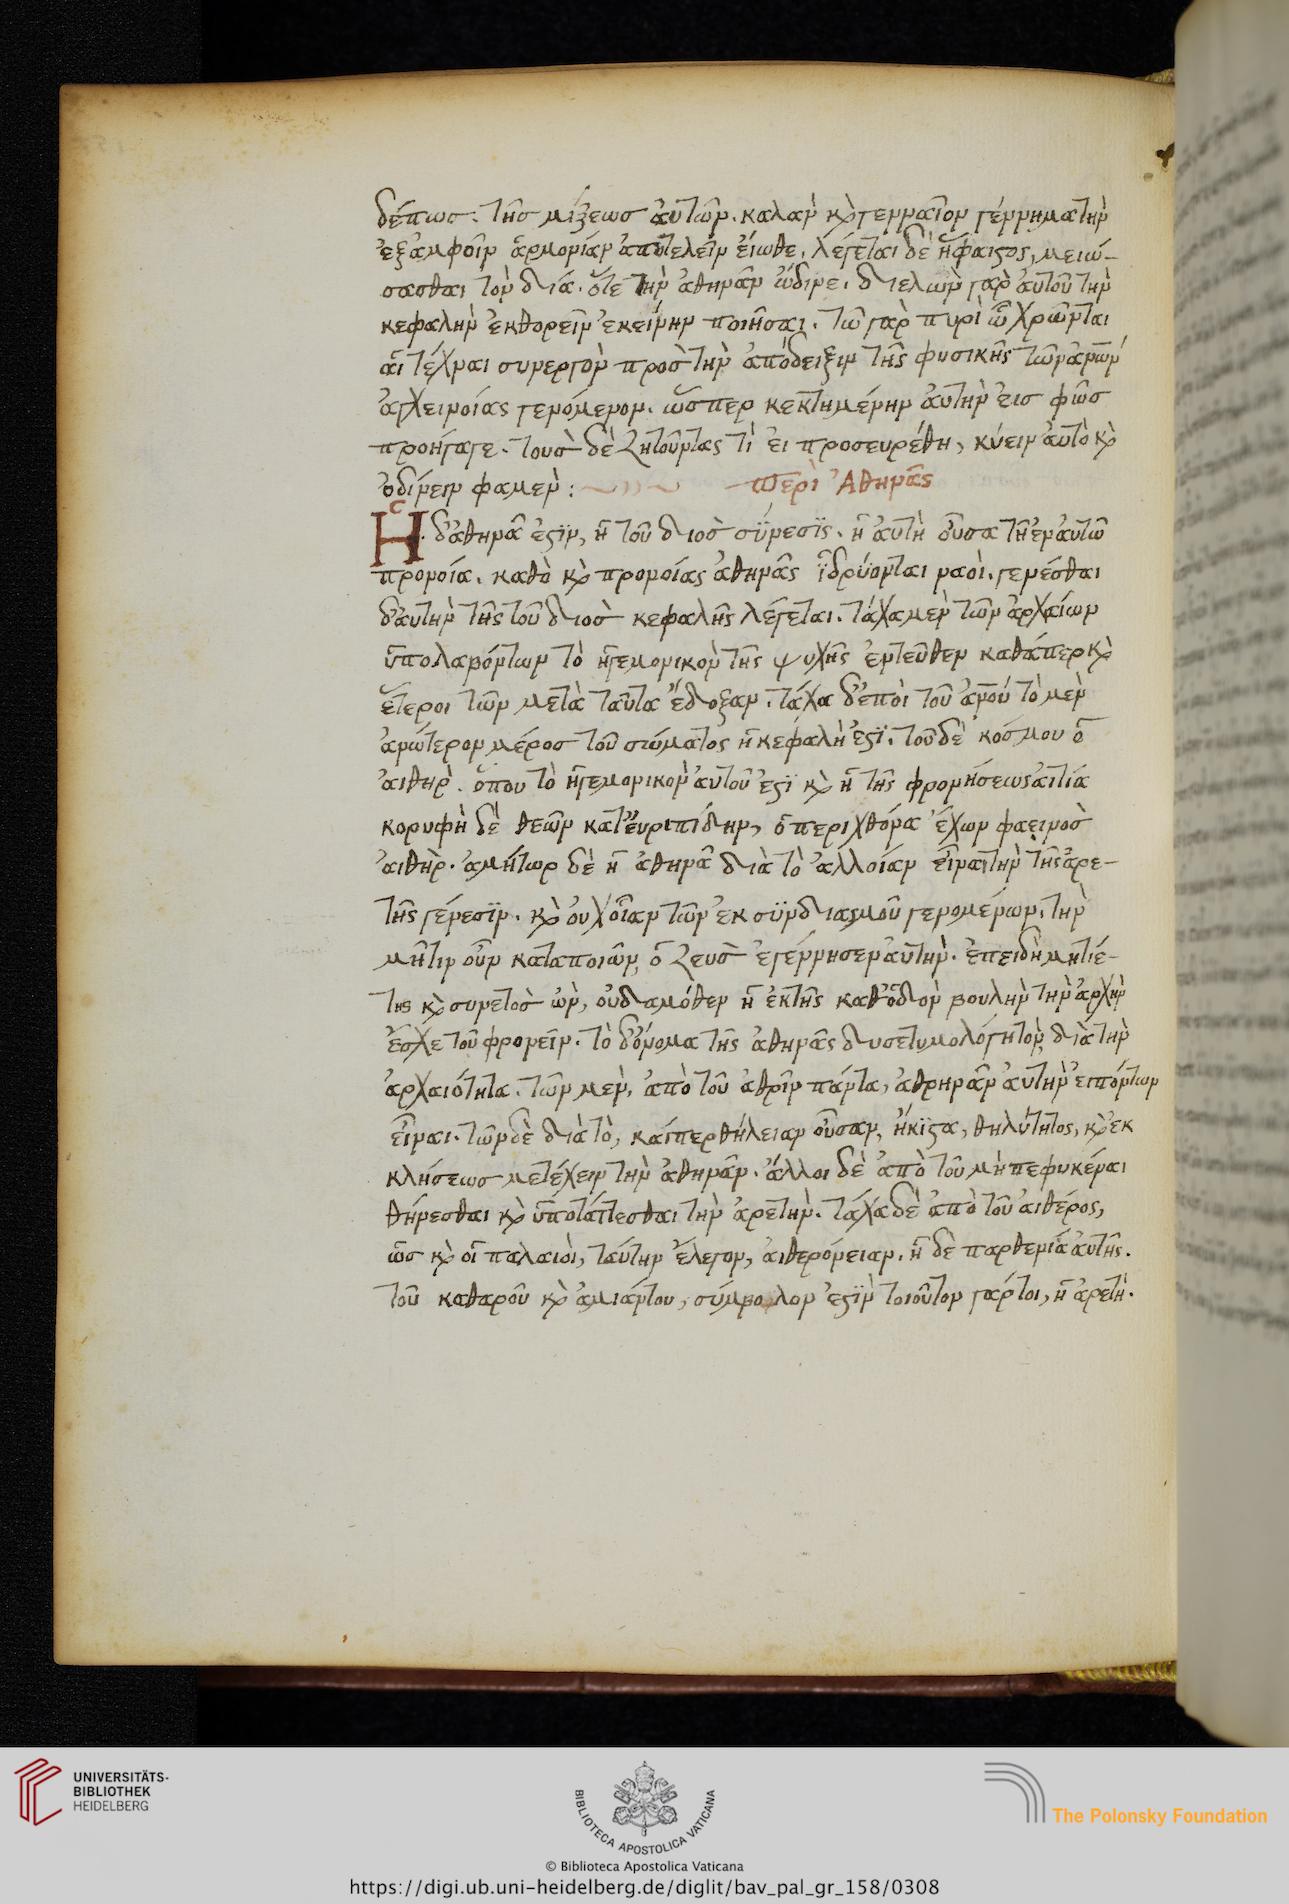 δέπως. τῆς μίξεως αὐτῶν. καλὸν κὴ γενναῖον γέννημα τὴν
ἐξ ἀμφοῖν ἁρμονίαν ἀποτελεῖν εἴωθε. λέγεται δὲ ἥφαιστος, μειώ-
σασθαι τὸν δία. ὅτε τὴν ἀθηνᾶν ὤδινε. διελὼν γὰρ αὐτοῦ τὴν
κεφαλὴν ἐκθορεῖν ἐκείνην ποιῆσαι. τῶ γὰρ πυρὶ ὧ χρῶνται
αἱ τέχναι συνεργὸν πρὸς τὴν ἀπόδειξιν τῆς φυσικῆς τῶν ἀνων
ἀγχεινοίας γενόμενον. ὥσπερ κεκτημένην αὐτὴν εἰς φῶς
προήγαγε. τοὺς δὲ ζητοῦντας τὶ εἰ προσευρέθη, κύειν αὐτὸ κὴ
ὀδίνειν φαμεν :
περὶ Ἀθηνᾶς
Η δ'ἀθηνᾶ ἐστὶν, ἡ τοῦ διὸς σύνεσις. ἡ αὐτὴ οὖσα τῆ ἐν αὐτῶ
προνοία. καθὸ κὴ προνοίας ἀθηνᾶς ἱδρύονται ναοὶ. γενέσθαι
δ'αὐτὴν τῆς τοῦ διὸς κεφαλῆς λέγεται. τάχα μὲν τῶν ἀρχαίων
ὑπολαβόντων τὸ ἡγεμονικὸν τῆς ψυχῆς ἐντεῦθεν καθάπερ κὴ
ἕτεροι τῶν μετὰ ταῦτα ἔδοξαν. τάχα δ'ἐποὶ τοῦ ἀνου τὸ μὲν
ἀνώτερον μέρος τοῦ σώματος ἡ κεφαλὴ ἐστὶ. τοῦ δὲ κόσμου ὁ
αἰθὴρ. ὅπου τὸ ἡγεμονικὸν αὐτοῦ ἐστὶ κὴ ἡ τῆς φρονήσεως αἰτία
κορυφὴ δὲ θεῶν κατ' εὐριπίδην, ὁ περὶ χθόνα ἔχων φαεινὸς
αἰθὴρ. ἀμήτωρ δὲ ἡ ἀθηνᾶ διὰ τὸ ἀλλοίαν εἶναι τὴν τῆς ἀρε-
τῆς γένεσιν. κὴ οὐχ οἵαν τῶν ἐκ συνδιασμοῦ γενομένων. τὴν
μῆτιν οὖν καταποιῶν, ὁ ζεὺς ἐγέννησεν αὐτὴν. ἐπειδὴ μητιέ-
της κὴ συνετὸς ὢν, οὐδαμόθεν ἢ ἐκ τῆς καθ'ὁδιον βουλὴν τὴν ἀρχὴν
ἔσχε τοῦ φρονεῖν. τὸ δ'ὄνομα τῆς ἀθηνᾶς δυσετυμολόγητον, διὰ τὴν
ἀρχαιότητα. τῶν μὲν, ἀπὸ τοῦ ἀθρῖν πάντα, ἀθρηνᾶν αὐτὴν εἰπόντων
εἶναι. τῶν δὲ διὰ τὸ, καίπερ θήλειαν οὖσαν, ἥκιστα, θηλύτητος, κὴ ἐκ
κλήσεως μετέχειν τὴν ἀθηνᾶν. ἄλλοι δὲ ἀπὸ τοῦ μὴ πεφυκέναι
θήνεσθαι κὴ ὑποτάττεσθαι τὴν ἀρετὴν. τάχα δὲ ἀπὸ τοῦ αἰθέρος,
ὡς κὴ οἱ παλαιοὶ, ταύτην ἔλεγον, αἰθερόνειαν. ἡ δὲ παρθενία αὐτῆς.
τοῦ καθαροῦ κὴ ἀμιάντου, σύμβολον ἐστὶν τοιοῦτον γάρ τοι, ἡ ἀρετὴ.
UNIVERSITÄTS-
BIBLIOTHEK
HEIDELBERG
BIBLIOTECA APOSTOLICA VATICANA
The Polonsky Foundation
© Biblioteca Apostolica Vaticana
https://digi.ub.uni-heidelberg.de/diglit/bav_pal_gr_158/0308